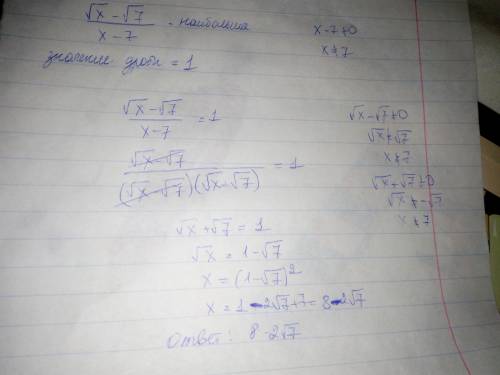 (√x - √7)/(x - 7) - наибольшая
x - 7 ≠ 0
x ≠ 7
значение дроби = 1
(√x - √7)/(x - 7) = 1
(√x - √7)/((√x - √7)(√x + √7)) = 1
√x + √7 = 1
√x = 1 - √7
x = (1 - √7)²
x = 1 - 2√7 + 7 = 8 - 2√7
Ответ: 8 - 2√7
√x - √7 ≠ 0
√x ≠ √7
x ≠ 7
√x + √7 ≠ 0
√x ≠ - √7
x ≠ 7